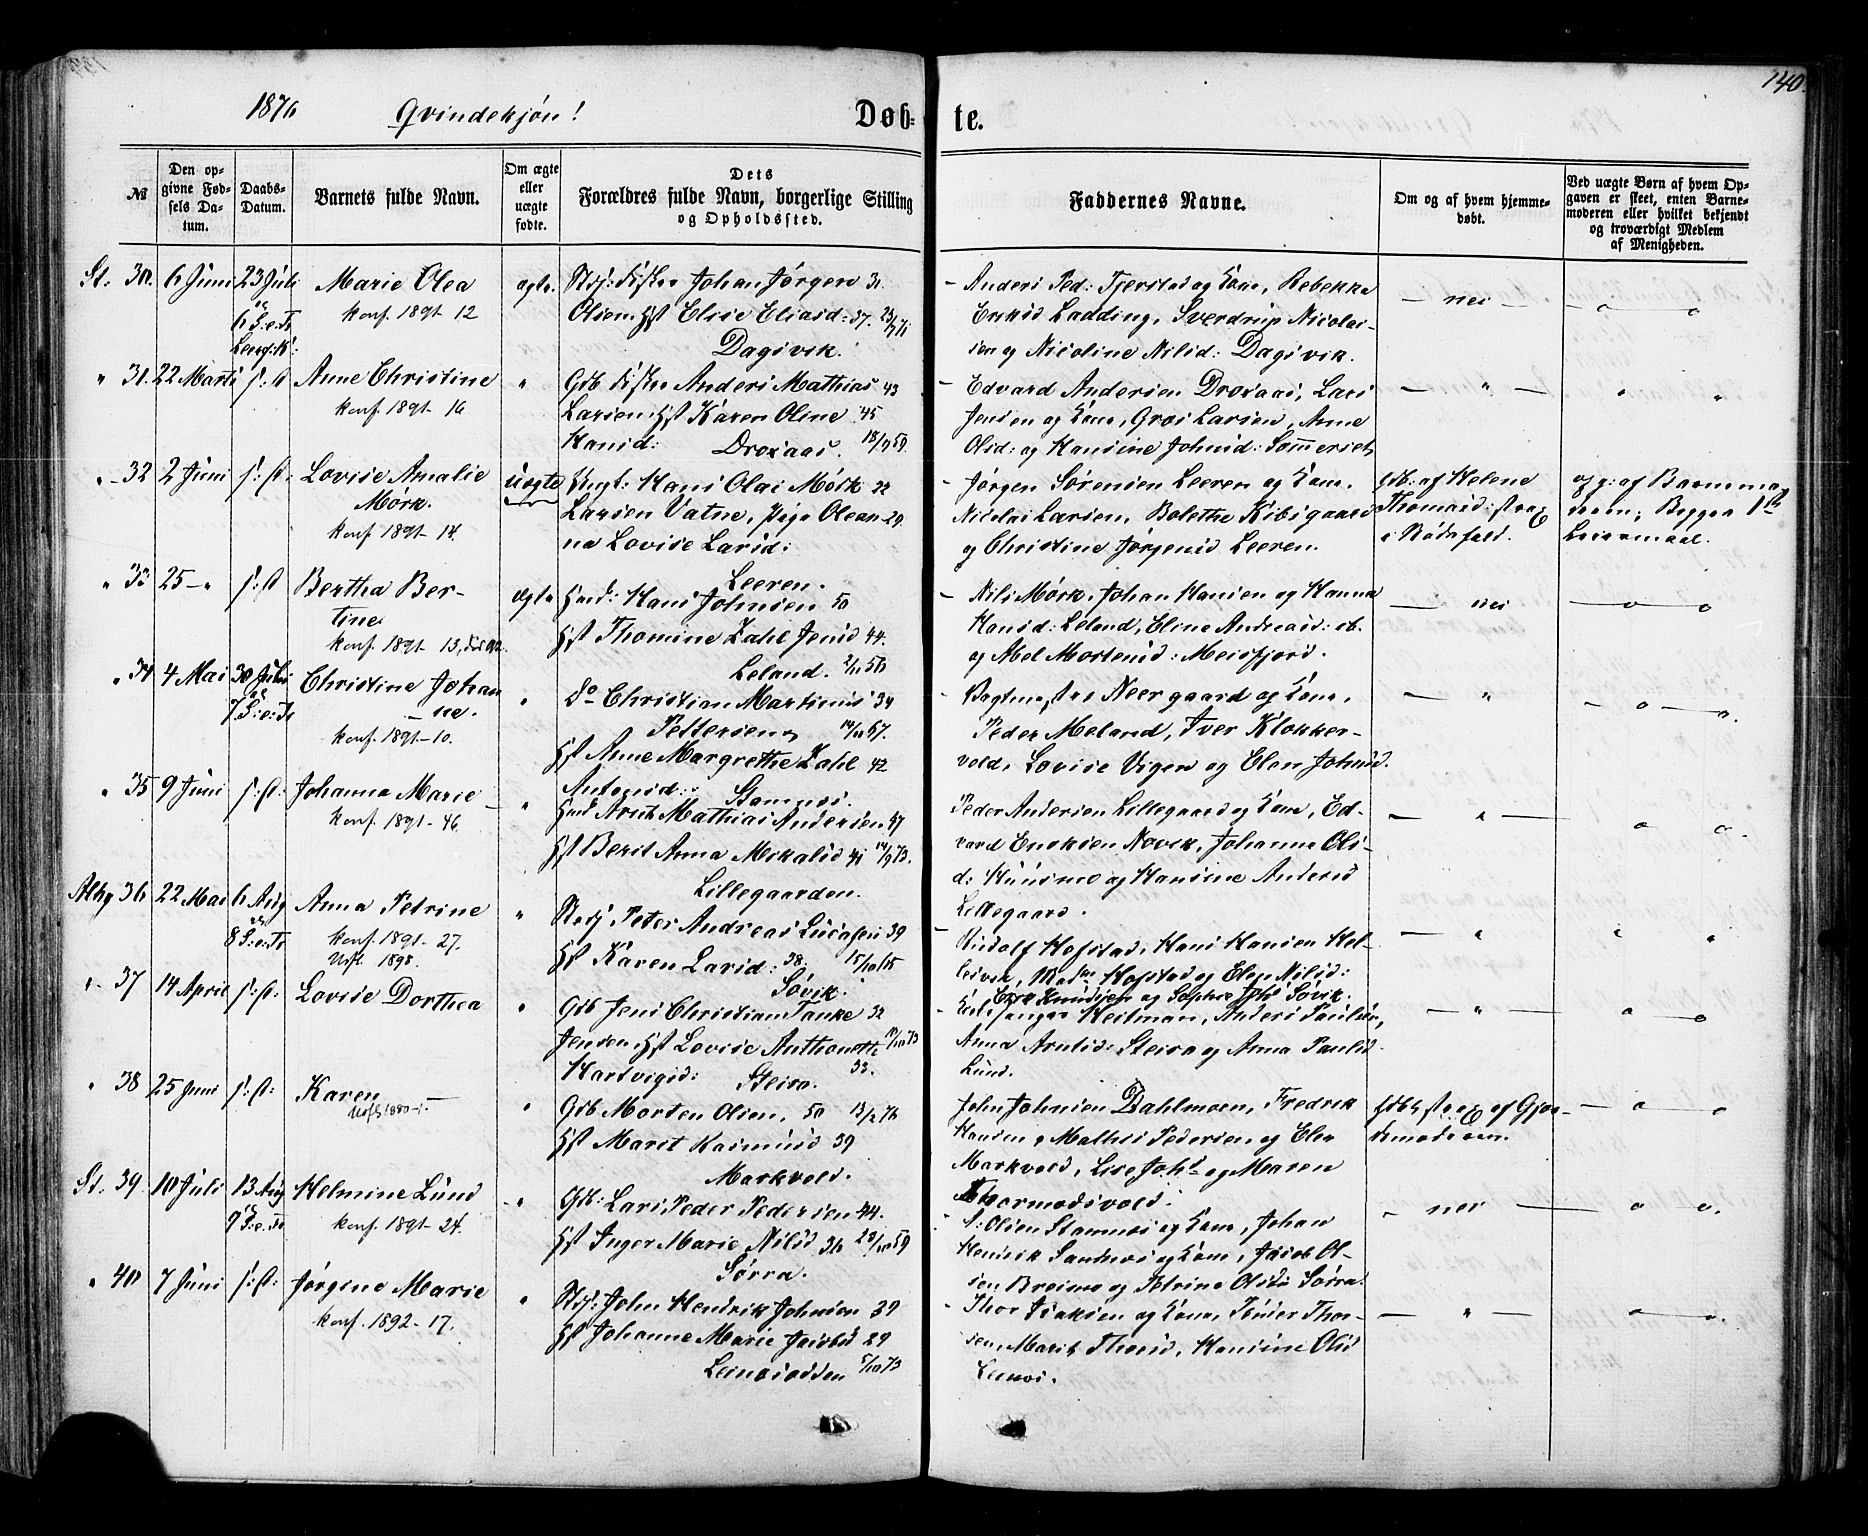 140
1876 Qvindekjön! Døb- te.
№
Den op-
givne Fød-
sels Da-
tum.
Daabs-
Datum.
Barnets fulde Navn.
Om ægte
eller
uægte
fødte.
Dets
Forældres fulde Navn, borgerlige Stilling
og Opholdssted.
Faddernes Navne.
Om og af hvem hjemme-
døbt.
Ved uægte Børn af hvem Op-
gaven er skeet, enten Barne-
moderen eller hvilket bekjendt
og troværdigt Medlem
af Menigheden.
St. 30. 6 Juni 23 Juli
6 S: e: Tr
Marie Olea
konf. 1891 12
ægte
Johan Jørgen 31
Olsen Hst Elise Eliasd: 37.
Dagsvik.
Anders Ped: Tjerstad og Kone, Rebekka
Sverdrup Nicolai-
sen og Nicoline Nilsd: Dagsvik.
— nei — — o o
" 31. 22 Marts s: st
Anne Christine
konf. 1891 - 16
"
Gdb Anders Mathias 43
Larsen Hst Karen Oline 45
Hansd: Drosaas. 18/9 59
Edvard Andersen Drosaas, Lars
Jensen og Kone, Groes Larsen, Anne
Olsd: og Hansine Johnsd:
— " — " "
" 32 2 Juni s: st:
Lovise Amalie
Mørk.
konf. 1891 - 14.
uægte
Ungk: Hans Olai Mørk 32
Larsen Vatne, Pige Olean- 29.
na Lovise Larsd:
Leeren.
Jørgen Sørensen Leeren og Kone,
Nicolai Larsen, Bolethe Kibsgaard
og Christine Jørgensd Leeren.
Hdb: af Helene
Thomasd: strax
i Nødsfald.
opg: af Barnemo-
deren; Begges 1ste
Leiermaal.
" 33 25 — " s: st
Bertha Ber-
tine
konf. 1891 - 13,
ægte
Hmd: Hans Johnsen 50
Hst Thomine Zahl Jensd 44.
Leland. 2/11 56
Nils Mørk, Johan Hansen og Hanna
Hansd: Leland, Eline Andreasd: ib.
og Abel Mortensd: Meisfjord.
— nei — o — o
" 34 4 Mai 30 Juli
7 S: e: Tr
Christine Johan
- ne.
konf. 1891 - 10.
"
Do Christian Martinus 34
Pettersen 67.
Hst Anne Margrethe Zahl 42
Antonsd: Stamnes.
Neergaard og Kone,
Peder Meland, Iver Klokker-
vold, Lovise Vigen og Elen Johnsd.
— " — o —
" 35 9 Juni s: st:
Johanna Marie
konf. 1891 - 46.
"
Hmd Arnt Mathias Andersen 47
Hst Berit Anna Mikalsd 41 14/9 73.
Lillegaarden.
Peder Andersen Lillegaard og Kone, Ed-
vard Enoksen Novik, Johanna Ols-
d: og Hansine Andersd
Lillegaard.
— " — o o.
Alhg 36 22 Mai 6 Aug
8 S: e: Tr
Anna Petrine
konf. 1891 - 27.
Utfl. 1898.
"
Peter Andreas Lucasen 39
Hst Karen Larsd: 38. 15/10 65
Søvik.
Rudolf Hofstad, Hans Hansen Hel-
lesvik, Mad. Hofstad og Elen Nilsd:
Knudsen og Sophie Johd Søvik.
— " — " "
" 37 14 April s: st:
Lovise Dorthea
"
Gdb Jens Christian Tanke 32
Jensen Hst Lovise Anthonette
Hartvigsd: 33. Steiro.
Heitman, Anders Paulsen,
Anna Arntsd: Steiro og Anna Paulsd
Lund.
— " — o — o
" 38 25 Juni s: st:
Karen —
"
Gdb Morten Olsen, 50 13/2 76
Hst Marit Rasmusd 39
Markvold.
John Johnsen Dahlmoen, Fredrik
Hansen, Mathis Pedersen og Elen
Markvold, Lise Johd og Maren
Thormodsvold.
Hdbt strax af Gjor-
demoderen.
— o — o
St. 39. 10 Juli 13 Aug
9 S: e: Tr
Helmine Lund
konf. 1891 - 24.
"
Gdb: Lars Peder Pedersen 44.
Hst Inger Marie Nilsd 36 59
Sørra.
Olsen Stamnes og Kone, Johan
Henrik Sandnes og Kone, Jacob Ol-
sen Breimo og Petrine Olsd: Sørra.
— nei — o o.
" 40 7 Juni s: st:
Jørgine Marie
konf. 1892 - 17.
"
John Hendrik Johnsen 39
Hst Johanne Marie Jacobsd 29
Leinesodden 5/10 73
Thor Isaksen og Kone, Peder Thor-
sen, Marit Thorsd, Hansine Olsd
Leines.
— " — o — o.